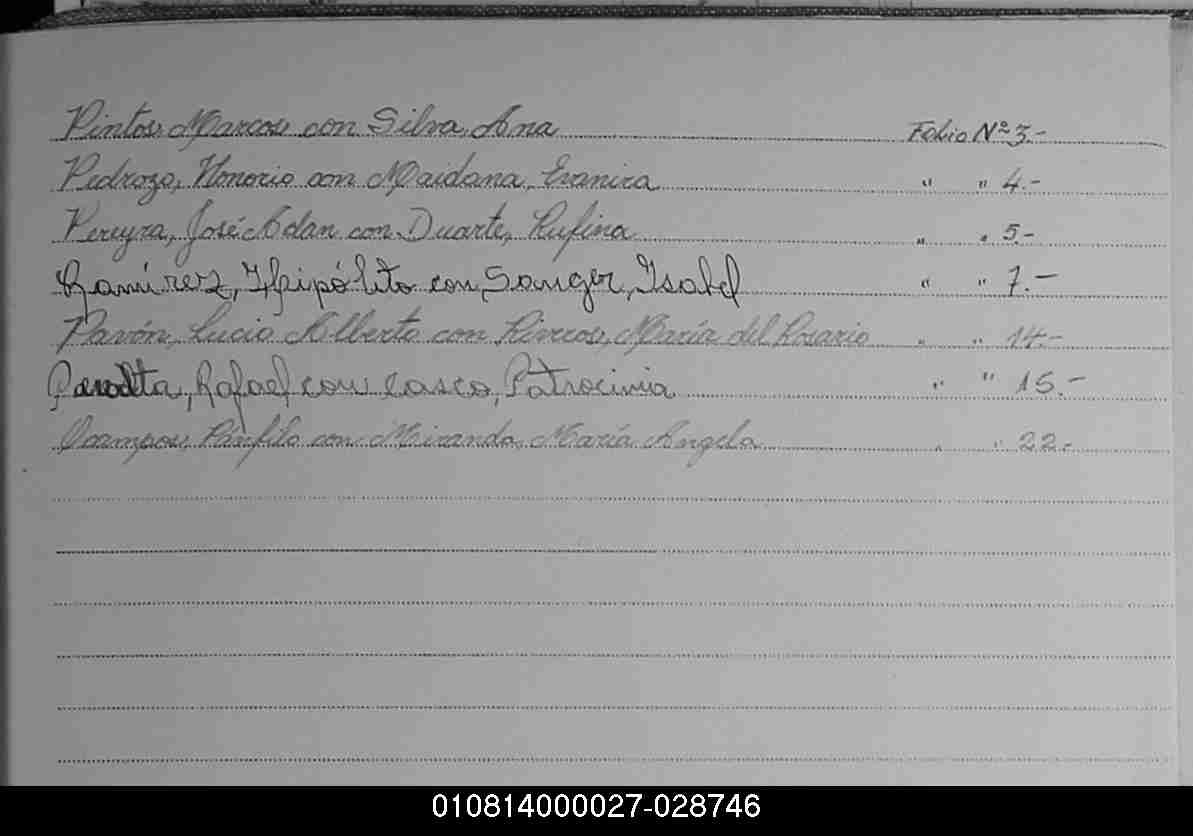 Pintos, Marcos con Silva, Ana Folio Nº 3.-
Pedrozo, Honorio con Maidana, Evanira " " 4.-
Pereyra, José Adan con Duarte, Rufina " " 5.-
Ramírez, Hipólito con Sanger, Isabel " " 7.-
Pavón, Lucio Alberto con Riveros, María del Rosario " " 14.-
Peralta, Rafael con Casco, Patrocinia " " 15.-
Ocampos, Pánfilo con Miranda, María Angela " " 22.-
010814000027-028746